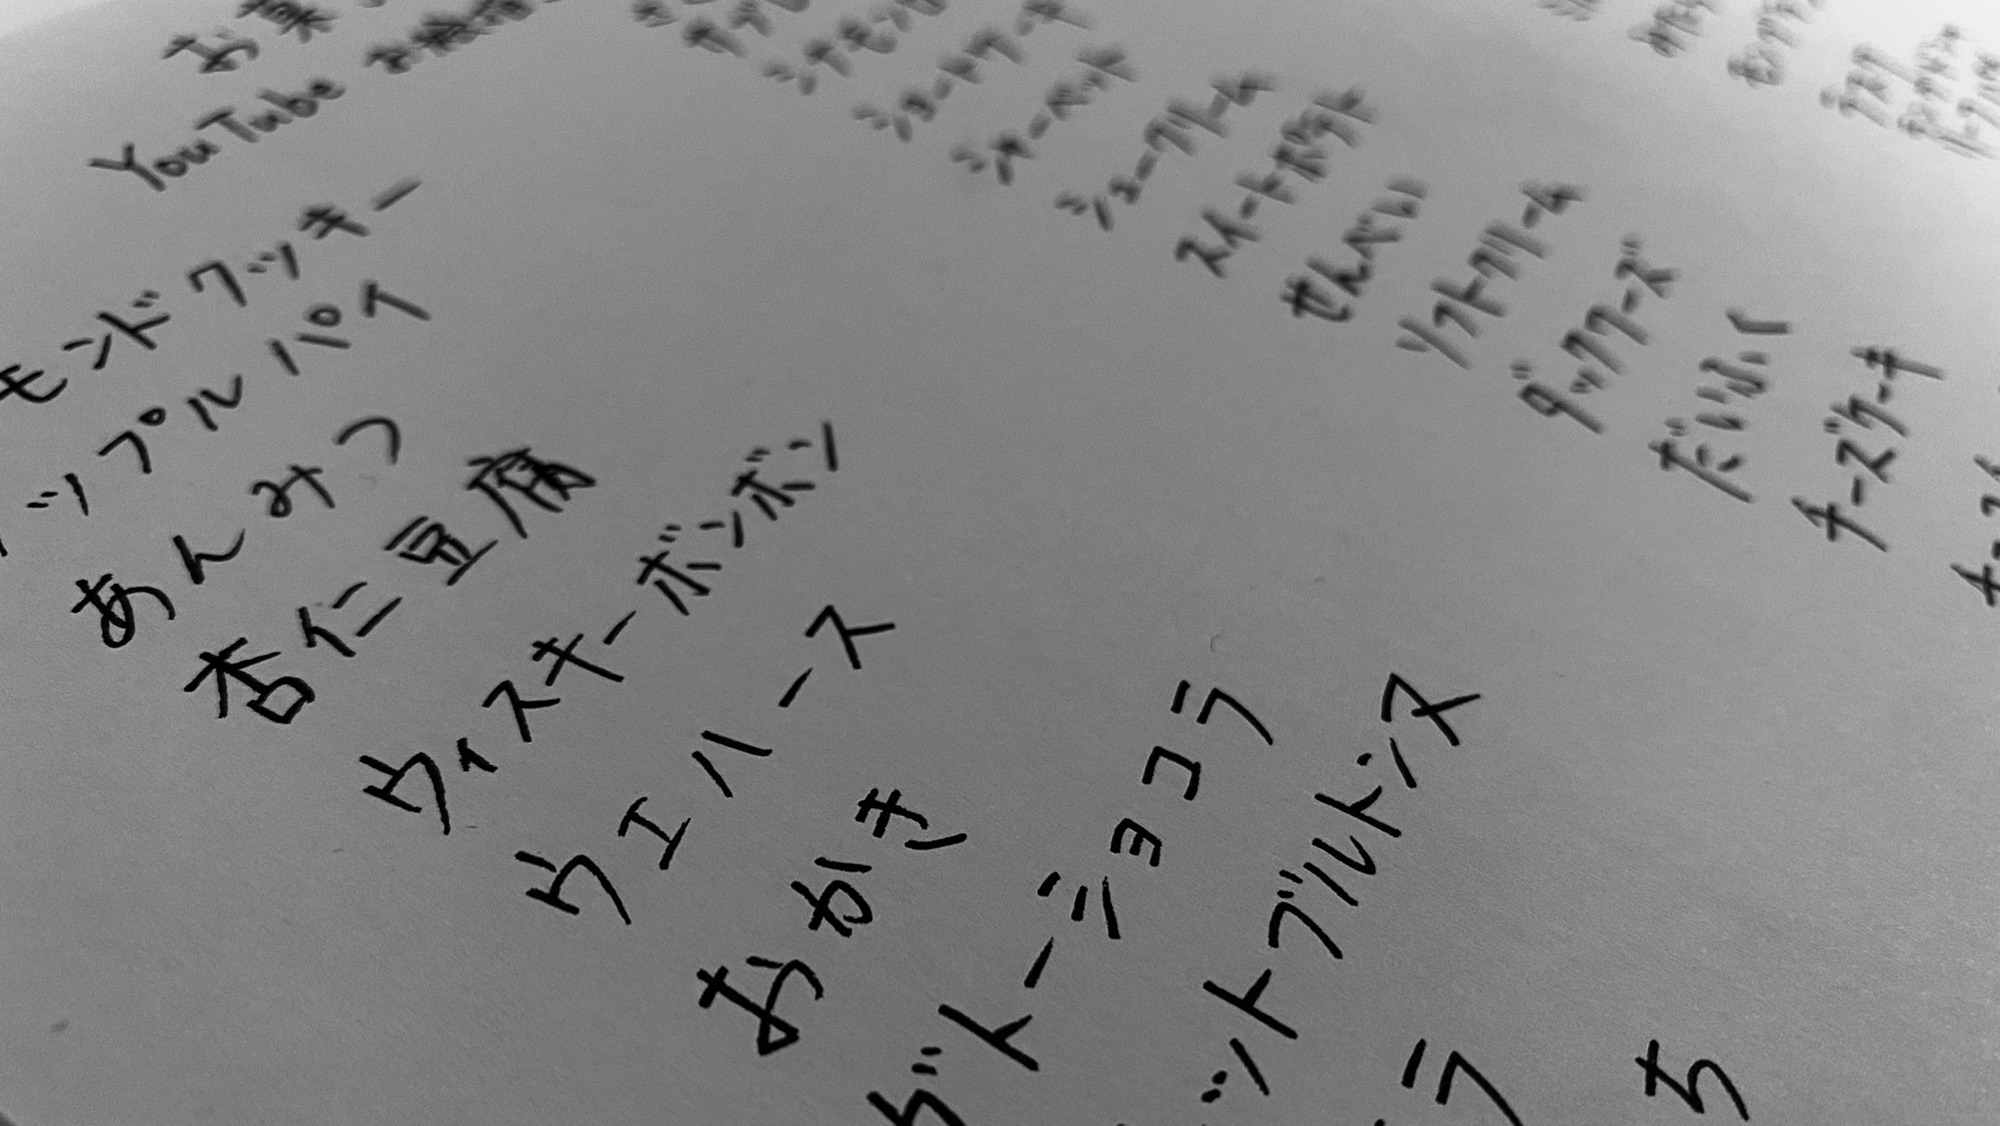 YouTube
モンドクッキー
ップルパイ
あんみつ
杏仁豆腐
ウィスキーボンボン
ウエハース
おかき
ガトーショコラ
ットブルトンヌ
ラ
ち
ショートケーキ
シャーベット
シュークリーム
スイートポテト
せんべい
ソフトクリーム
ダックワーズ
だいふく
チーズケーキ